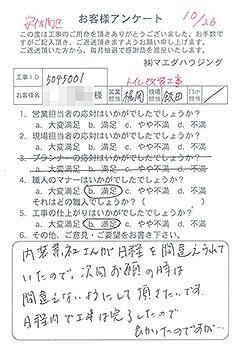 お客様アンケート
10/26
この度は工事のご用命を頂きありがとうございました。お手数で
すがご記入頂き、ご返送頂きますようお願い申し上げます。
ご返送頂いた方から、毎月抽選で感謝品を進呈いたします。
㈱マエダハウジング
工事ID 5045001 トイレ改装工事
お客様名 様 営業担当 福岡 現場担当 飯田 プラン担当
1. 営業担当者の応対はいかがでしたでしょうか？
a. 大変満足 b. 満足 c. やや不満 d. 不満
2. 現場担当者の応対はいかがでしたでしょうか？
a. 大変満足 b. 満足 c. やや不満 d. 不満
3. プランナーの応対はいかがでしたでしょうか？
a. 大変満足 b. 満足 c. やや不満 d. 不満
4. 職人のマナーはいかがでしたでしょうか？
a. 大変満足 b. 満足 c. やや不満 d. 不満
それはどの職人でしたか？（ ）
5. 工事の仕上がりはいかがでしたでしょうか？
a. 大変満足 b. 満足 c. やや不満 d. 不満
6. その他、ご意見・ご要望をお書き下さい。
内装業社さんが日程を間違えられて
いたので、次回お願の時は
間違えないようにして頂きたいです。
日程内で工事は完了したので
良かったのですが…